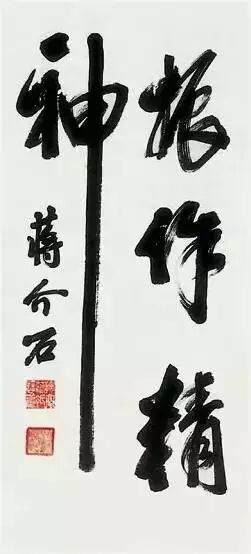 振作精
神
蔣介石